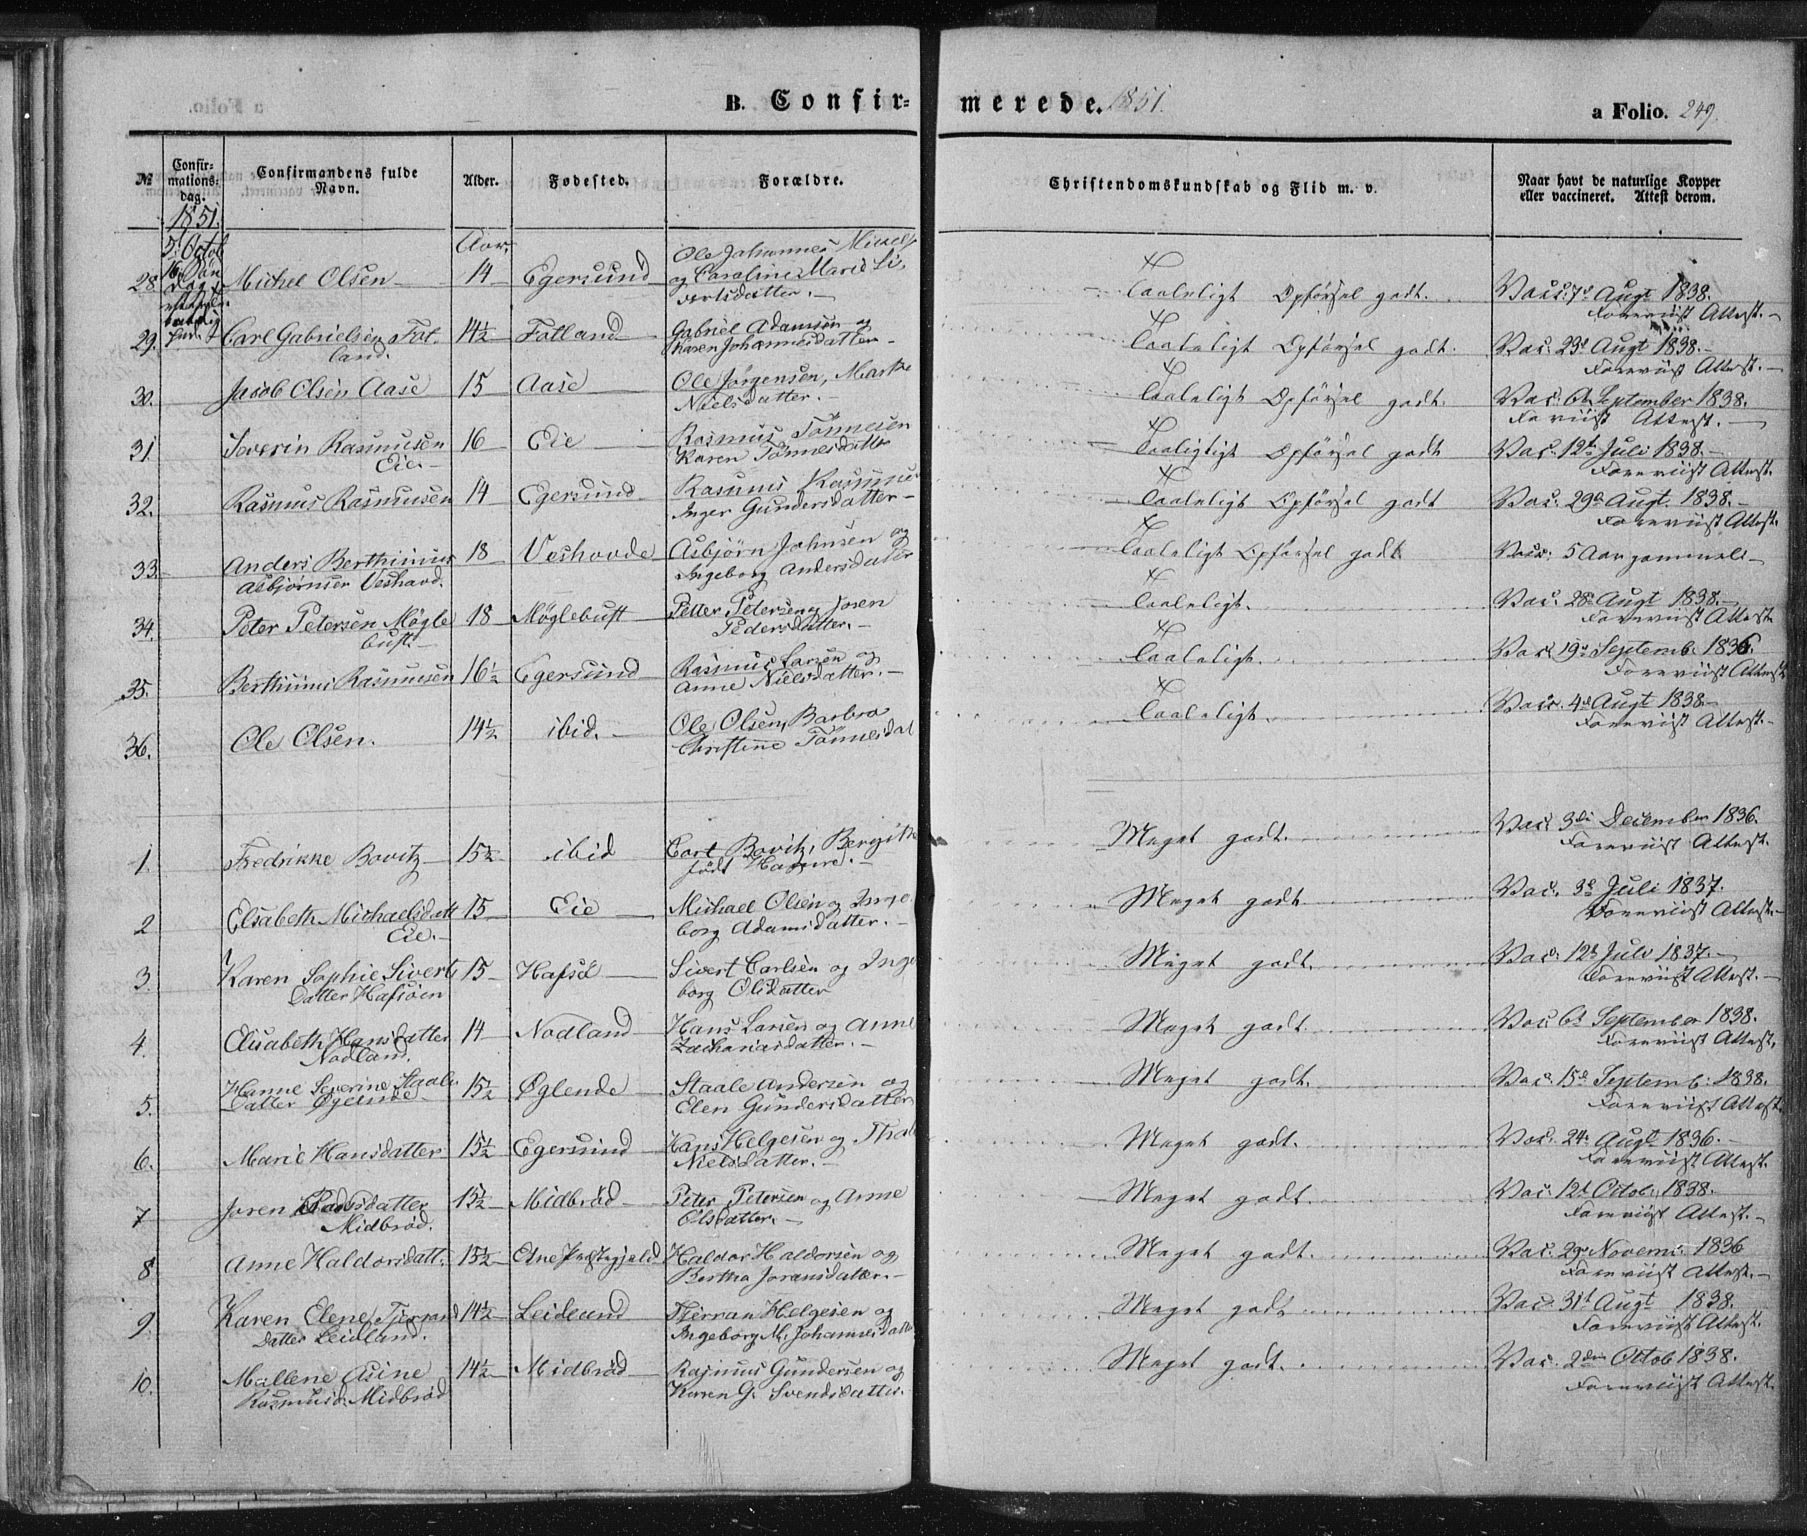 B. Confir-
merede. 1851.
a Folio. 249.
№
Confir-
mations-
dag.
Confirmandens fulde
Navn.
Alder.
Fødested.
Forældre.
Christendomskundskab og Flid m. v.
Naar havt de naturlige Kopper
eller vaccineret. Attest derom.
1851.
5t Octob
16 Søn
dag
Aar.
28 Michel Olsen 14 Egersund Ole Johannes
og Caroline Marie Si-
vertsdatter. Taaleligt Opførsel godt. Vacc. 7d Augt 1838.
Foreviist Attest.
29. Carl Gabrielsen Fot-
land. 14½ Fotland Gabriel Adamsen og
Karen Johannesdatter Taaleligt Opførsel godt. Vac. 23d Augt 1838.
Foreviist Attest.
30. Jacob Olsen Aase 15 Aase Ole Jørgensen, Marthe
Nielsdatter. Taaleligt Opførsel godt. Vac. 6t September 1838.
Foreviist Attest.
31 Severin Rasmusen
Eie. 16 Eie Rasmus Tønnesen
Karen Tønnesdatte Taaligtigt Opførsel godt Vac. 12t Juli 1838.
Foreviist Attest.
32. Rasmus Rasmusen 14 Egersund Rasmus Rasmuse
Inger Gundersdatter Taaleligt Opførsel godt Vac. 29d Augt. 1838.
Foreviist Attest.
33. Anders Berthinius
Asbjørnsen Veshovd. 18 Veshovde Asbjørn Johnsen og
Ingeborg Andersdatter Taaleligt Opførsel godt Vacc: 5 Aar gammel
34. Peter Petersen Møgle
bust 18 Møglebust Petter Petersen og Joren
Pedersdatter. Taaleligt. Vac. 28d Augt 1838.
Foreviist Attest
35. Berthinius Rasmusen 16½ Egersund Rasmus Larsen og
Anne Nielsdatter. Taaleligt. Vac. 19d Septemb. 1836.
Foreviist Attest
36. Ole Olsen. 14½ ibid. Ole Olsen, Barbro
Christine Tønnesdat Taaleligt. Vacc. 4d Augt 1838
Foreviist Attest.
1. Fredrikke Bovitz 15½ ibid Cort Bovitz, Bergithe
født Meget godt. Vac. 3die December 1836.
Foreviist Attest.
2 Elsabeth Michaelsdatt
Eie. 15 Eie Michael Olsen og Inge
borg Adamsdatter. Meget godt. Vac. 3d Juli 1837.
Foreviist Attest.
3. Karen Sophie Siverts
Datter Hafsøen 15 Hafsø Sivert Carlsen og Inge
borg Olsdatter Meget godt. Vac. 12t Juli 1837.
Foreviist Attest.
4. Elisabeth Hansdatter
Nodland. 14 Nodland Hans Larsen og Anne
Zachariasdatter. Meget godt. Vac 6t September 1838.
Foreviist Attest.
5. Hanne Severine Staale
Datter Øglende 15½ Øglende Staale Andersen og
Elen Gundersdatter Meget godt. Vac. 15d Septemb: 1838.
Foreviist Attest.
6. Marie Hansdatter 15½ Egersund Hans Helgesen og
Nielsdatter. Meget godt. Vac. 24d Augt 1836.
Foreviist Attest.
7 Joren
Midbrød. 15½ Midbrød Peter Petersen og Anne
Olsdatter. Meget godt. Vac. 12t Octob. 1838.
Foreviist Attest.
8 Anne Haldorsdatt. 15½ Etne Præstegjeld Haldor Haldorsen og
Bertha Joransdatter. Meget godt. Vac. 29d Novem. 1836
Foreviist Attest.
9. Karen Elene Tjerrand
datter Leidland. 14½ Leidland Tjerran Helgesen og
Ingeborg M. Johannesdatte Meget godt Vac. 31t Augt 1838.
Foreviist Attest.
10. Mallene Asine
Rasmusd. Midbrød 14½ Midbrød Rasmus Gundersen og
Karen G. Svendsdatter. Meget godt. Vac. 2den Octob 1838.
Foreviist Attest.